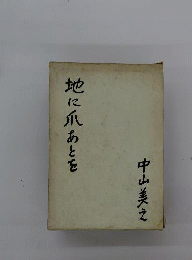 地に爪あとを
中山美之